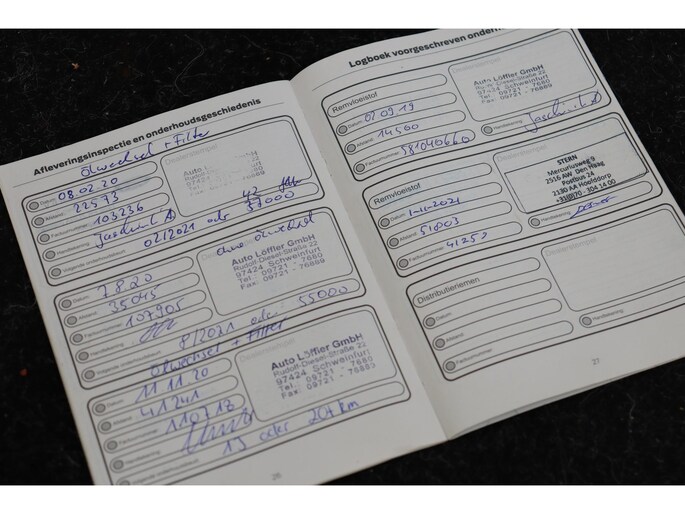 Afleveringsinspectie en onderhoudsgeschiedenis
Ölwechsel + Filter
Datum 08.02.20
Afstand 22573
Factuurnummer 103236
Handtekening
Volgende onderhoudsbeurt 02/2021 oder 37000
Dealerstempel
Auto
ohne Ölwechsel
Datum 7 8 20
Afstand 35045
Factuurnummer 107905
Handtekening
Volgende onderhoudsbeurt 8/2021 oder 55000
Auto Löffler GmbH
Rudolf-Diesel-Straße 22
97424 Schweinfurt
Tel.: 09721 - 7660
Fax: 09721 - 76889
Ölwechsel + Filter
Datum 11.11.20
Afstand 41241
Factuurnummer 110718
Handtekening
Volgende onderhoudsbeurt 1J oder 20tkm
Dealerstempel
Auto Löffler GmbH
Rudolf-Diesel-Straße 22
97424 Schweinfurt
Tel.: 09721 - 7660
Fax: 09721 - 76889
26
Logboek voorgeschreven
Remvloeistof
Datum 07.09.19
Afstand 14500
Factuurnummer 581040660
Dealerstempel
Auto Löffler GmbH
Rudolf-Diesel-Straße 22
97424 Schweinfurt
Tel.: 09721 - 7660
Fax: 09721 - 76889
Handtekening
Remvloeistof
Datum 1-11-2021
Afstand 51803
Factuurnummer 41252
STERN
Mercuriusweg 9
2516 AW Den Haag
Postbus 24
2130 AA Hoofddorp
+31(0)70 - 304 14 00
Handtekening
Distributieriemen
Datum
Afstand
Factuurnummer
Dealerstempel
Handtekening
27